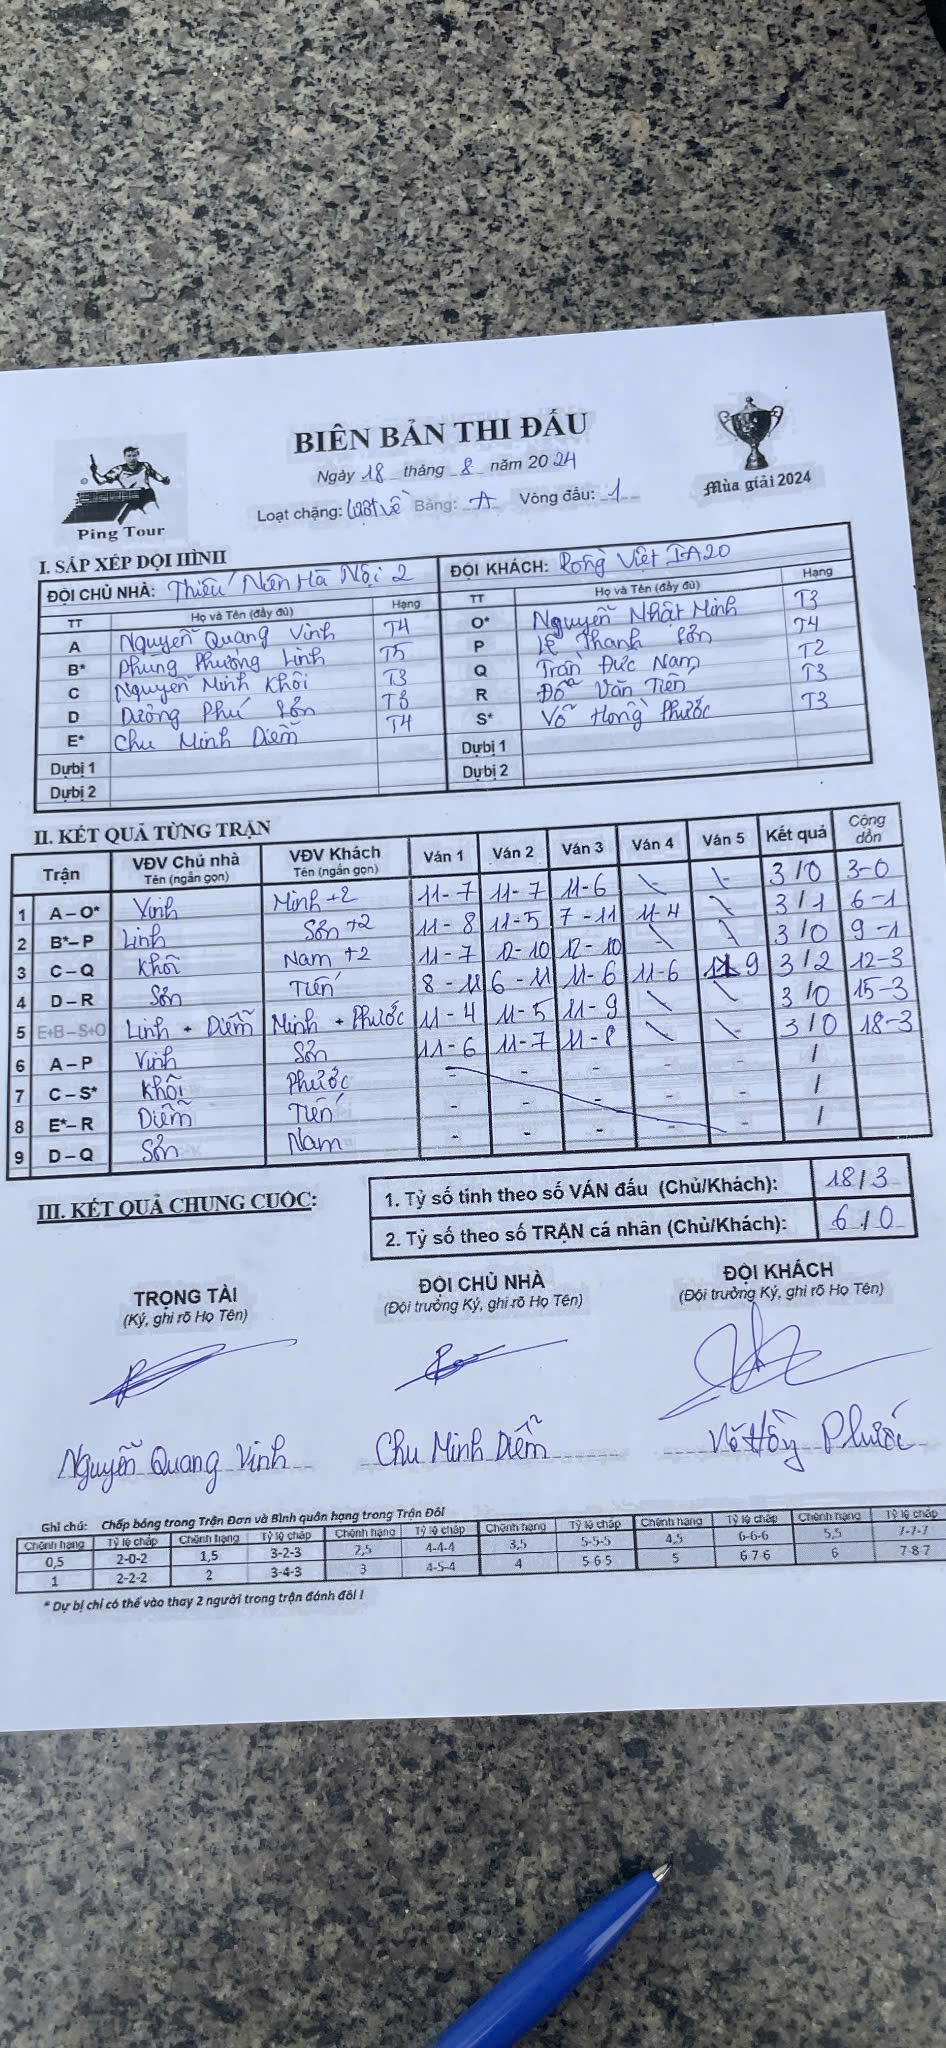 BIÊN BẢN THI ĐẤU
Ngày 18 tháng 8 năm 2024
Loạt chặng: lượt về Bảng: A Vòng đấu: 1
Ping Tour
Mùa giải 2024
I. SẮP XẾP ĐỘI HÌNH
ĐỘI CHỦ NHÀ: Thiếu Niên Hà Nội 2 ĐỘI KHÁCH: Rồng Việt IA20
TT Họ và Tên (đầy đủ) Hạng TT Họ và Tên (đầy đủ) Hạng
A Nguyễn Quang Vinh T4 O* Nguyễn Nhật Minh T3
B* Phùng Phương Linh T5 P Lê Thanh Sơn T4
C Nguyễn Minh Khôi T3 Q Trần Đức Nam T2
D Dương Phú Sơn T3 R Đỗ Văn Tiến T3
E* Chu Minh Diễm T4 S* Võ Hồng Phước T3
Dự bị 1 Dự bị 1
Dự bị 2 Dự bị 2
II. KẾT QUẢ TỪNG TRẬN
Trận VĐV Chủ nhà Tên (ngắn gọn) VĐV Khách Tên (ngắn gọn) Ván 1 Ván 2 Ván 3 Ván 4 Ván 5 Kết quả Cộng dồn
1 A – O* Vinh Minh +2 11 - 7 11 - 7 11 - 6 \ \ 3 / 0 3-0
2 B* – P Linh Sơn +2 11 - 8 11 - 5 7 - 11 11 - 4 \ 3 / 1 6-1
3 C – Q Khôi Nam +2 11 - 7 12 - 10 12 - 10 \ \ 3 / 0 9-1
4 D – R Sơn Tiến 8 - 11 6 - 11 11 - 6 11 - 6 11 9 3 / 2 12-3
5 E+B – S+O Linh + Diễm Minh + Phước 11 - 4 11 - 5 11 - 9 \ \ 3 / 0 15-3
6 A – P Vinh Sơn 11 - 6 11 - 7 11 - 8 \ \ 3 / 0 18-3
7 C – S* Khôi Phước - - - - - /
8 E* – R Diễm Tiến - - - - - /
9 D – Q Sơn Nam - - - - - /
III. KẾT QUẢ CHUNG CUỘC:
1. Tỷ số tính theo số VÁN đấu (Chủ/Khách): 18 / 3
2. Tỷ số theo số TRẬN cá nhân (Chủ/Khách): 6 / 0
TRỌNG TÀI ĐỘI CHỦ NHÀ ĐỘI KHÁCH
(Ký, ghi rõ Họ Tên) (Đội trưởng Ký, ghi rõ Họ Tên) (Đội trưởng Ký, ghi rõ Họ Tên)
Nguyễn Quang Vinh Chu Minh Diễm Võ Hồng Phước
Ghi chú: Chấp bóng trong Trận Đơn và Bình quân hạng trong Trận Đôi
Chênh hạng Tỷ lệ chấp Chênh hạng Tỷ lệ chấp Chênh hạng Tỷ lệ chấp Chênh hạng Tỷ lệ chấp Chênh hạng Tỷ lệ chấp Chênh hạng Tỷ lệ chấp
0,5 2-0-2 1,5 3-2-3 2,5 4-4-4 3,5 5-5-5 4,5 6-6-6 5,5 7-7-7
1 2-2-2 2 3-4-3 3 4-5-4 4 5-6-5 5 6-7-6 6 7-8-7
* Dự bị chỉ có thể vào thay 2 người trong trận đánh đôi !